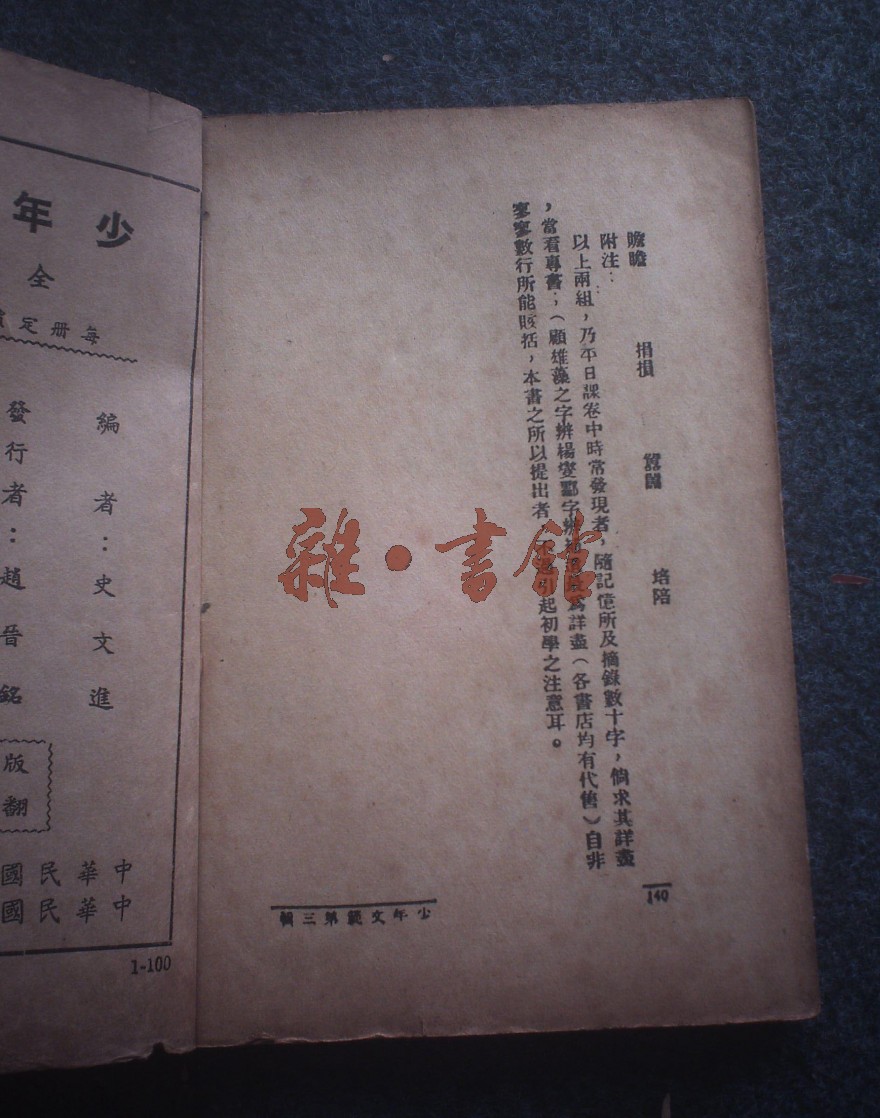 贍瞻　捐損　蠶　培陪
附注：
以上兩組，乃平日課卷中時常發現者，隨記憶所及摘錄數十字，倘求其詳盡
，當看專書；（顧雄藻之字辨楊　字辨　為詳盡（各書店均有代售）自非
寥寥數行所能賅括，本書之所以提出者　起初學之注意耳。
140
少年文範第三輯
雜·書館
少年
全
每册定
編者：史文進
發行者：趙晉銘
版
翻
中華民國
中華民國
1-100